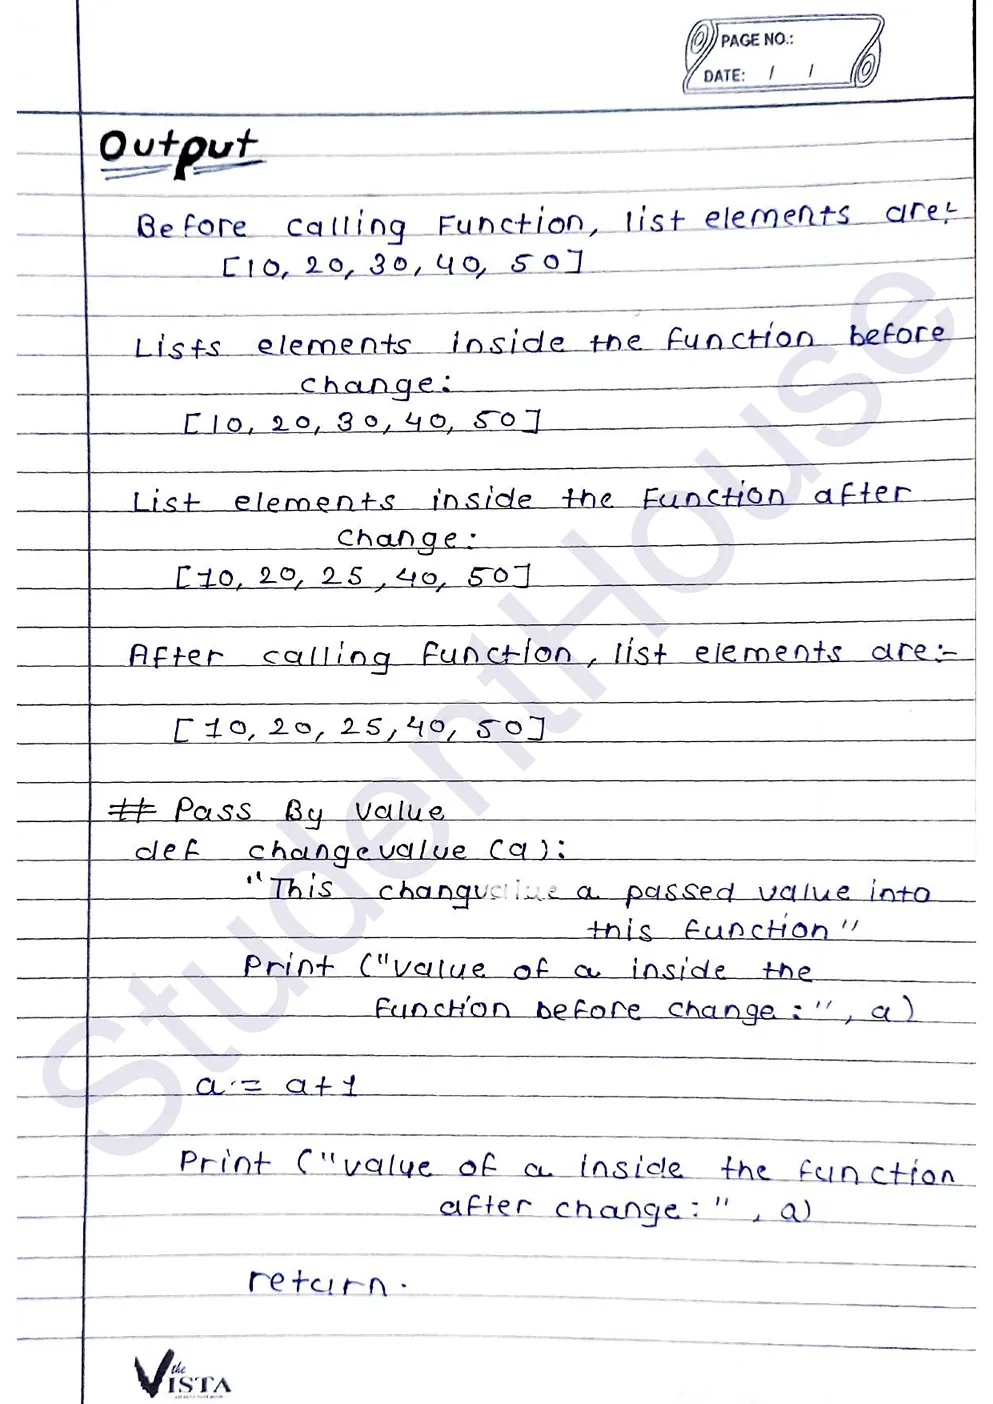 PAGE NO.:
DATE: / /
Output
Before calling Function, list elements are:-
[10, 20, 30, 40, 50]
Lists elements inside the function before
change:
[10, 20, 30, 40, 50]
List elements inside the Function after
change:
[10, 20, 25, 40, 50]
After calling function, list elements are:-
[10, 20, 25, 40, 50]
## Pass By value
def changevalue (a):
"This changvalue a passed value into
this function"
Print ("value of a inside the
function before change:", a)
a = a+1
Print ("value of a inside the function
after change:", a)
return.
StudentHouse
the
VISTA